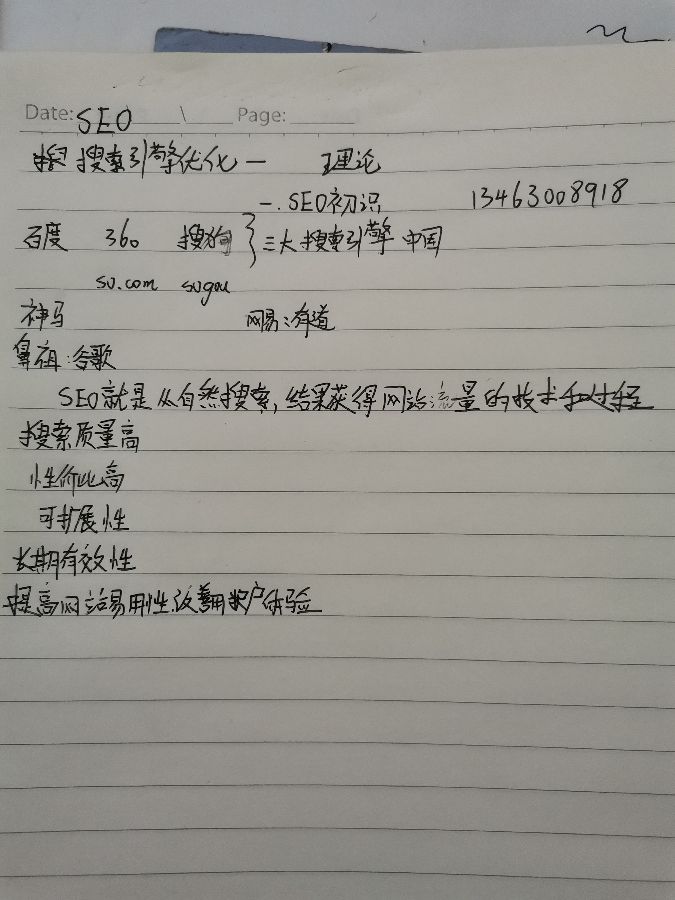 Date: SEO \ Page:
搜索引擎优化一 理论
一.SEO初识 13463008918
百度 360 搜狗 } 三大搜索引擎 中国
so.com sugou
神马 网易:有道
鼻祖:谷歌
SEO就是从自然搜索,结果获得网站流量的技术和过程
搜索质量高
性价比高
可扩展性
长期有效性
提高网站易用性,改善用户体验